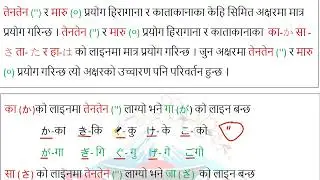 तेनतेन (") र मारु (०) प्रयोग हिरागाना र काताकानाका केहि सिमित अक्षरमा मात्र
प्रयोग गरिन्छ । तेनतेन (") र मारु (०) प्रयोग हिरागाना र काताकानाको का-か सा -
さ ता- た र हा-は को लाइनमा मात्र प्रयोग गरिन्छ । जुन अक्षरमा तेनतेन (") र मारु
(०) प्रयोग गरिन्छ त्यो अक्षरको उच्चारण पनि परिवर्तन हुन्छ ।
का (か)को लाइनमा तेनतेन (") लाग्यो भने गा (が) को लाइन बन्छ
か-का き-कि く-कु け-के こ-को "
が-गा ぎ-गि ぐ-गु げ-गे ごगो
सा (さ) को लाइनमा तेनतेन (") लाग्यो भने जा (ざ) को लाइन बन्छ